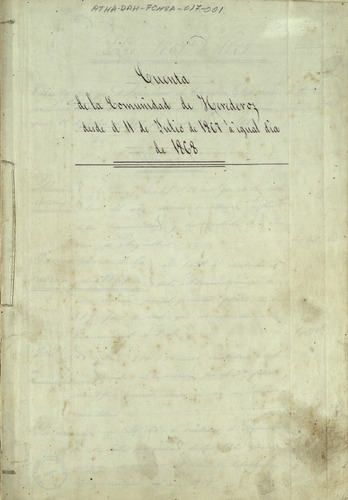 ATHA-DAH-FCHSA-017-001
Cuenta
de la Comunidad de Herederos
desde el 11 de Julio de 1867 à igual dia
de 1868